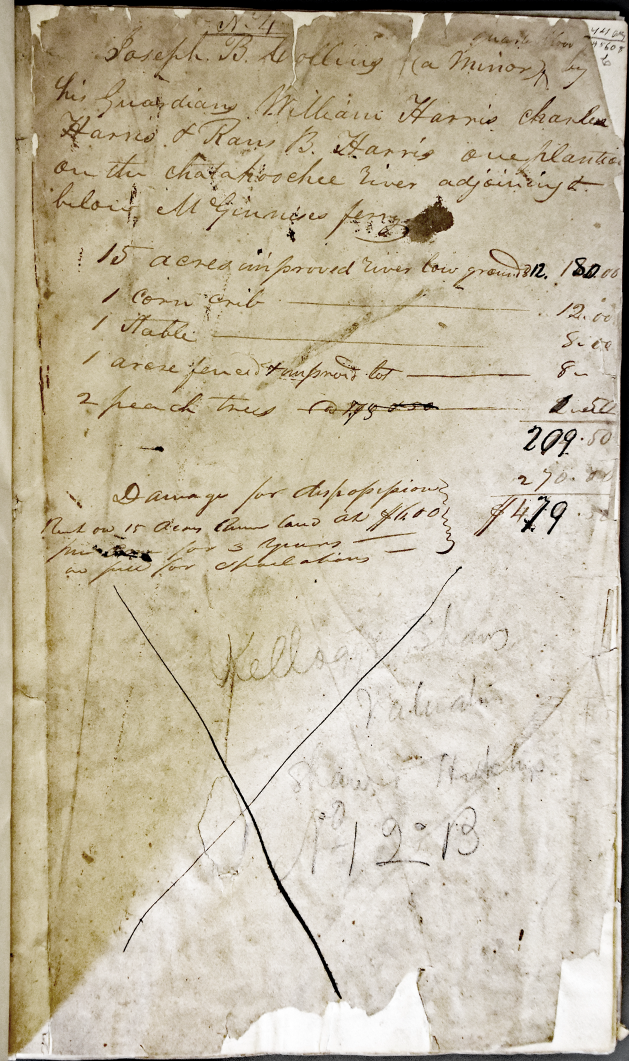 No. 4
Joseph B. (a Minor) by
his Guardians William Harris Charles
Harris & Rans B. Harris one plantation
on the Chatahoochee River adjoining &
below McGinnises ferry
15 acres improved River low grounds 12. 180.00
1 corn crib 12.00
1 Stable 8.00
1 acre fenced & improved lot 8-
2 peach trees 1.50
209.50
270.00
Damage for dispossession $479.50
Rent on 15 acres land at $6.00
for 3 years
in full for Spoliations
Kellogg & Shaws
Valuation
Shaw & Hutchgs.
No 2 B